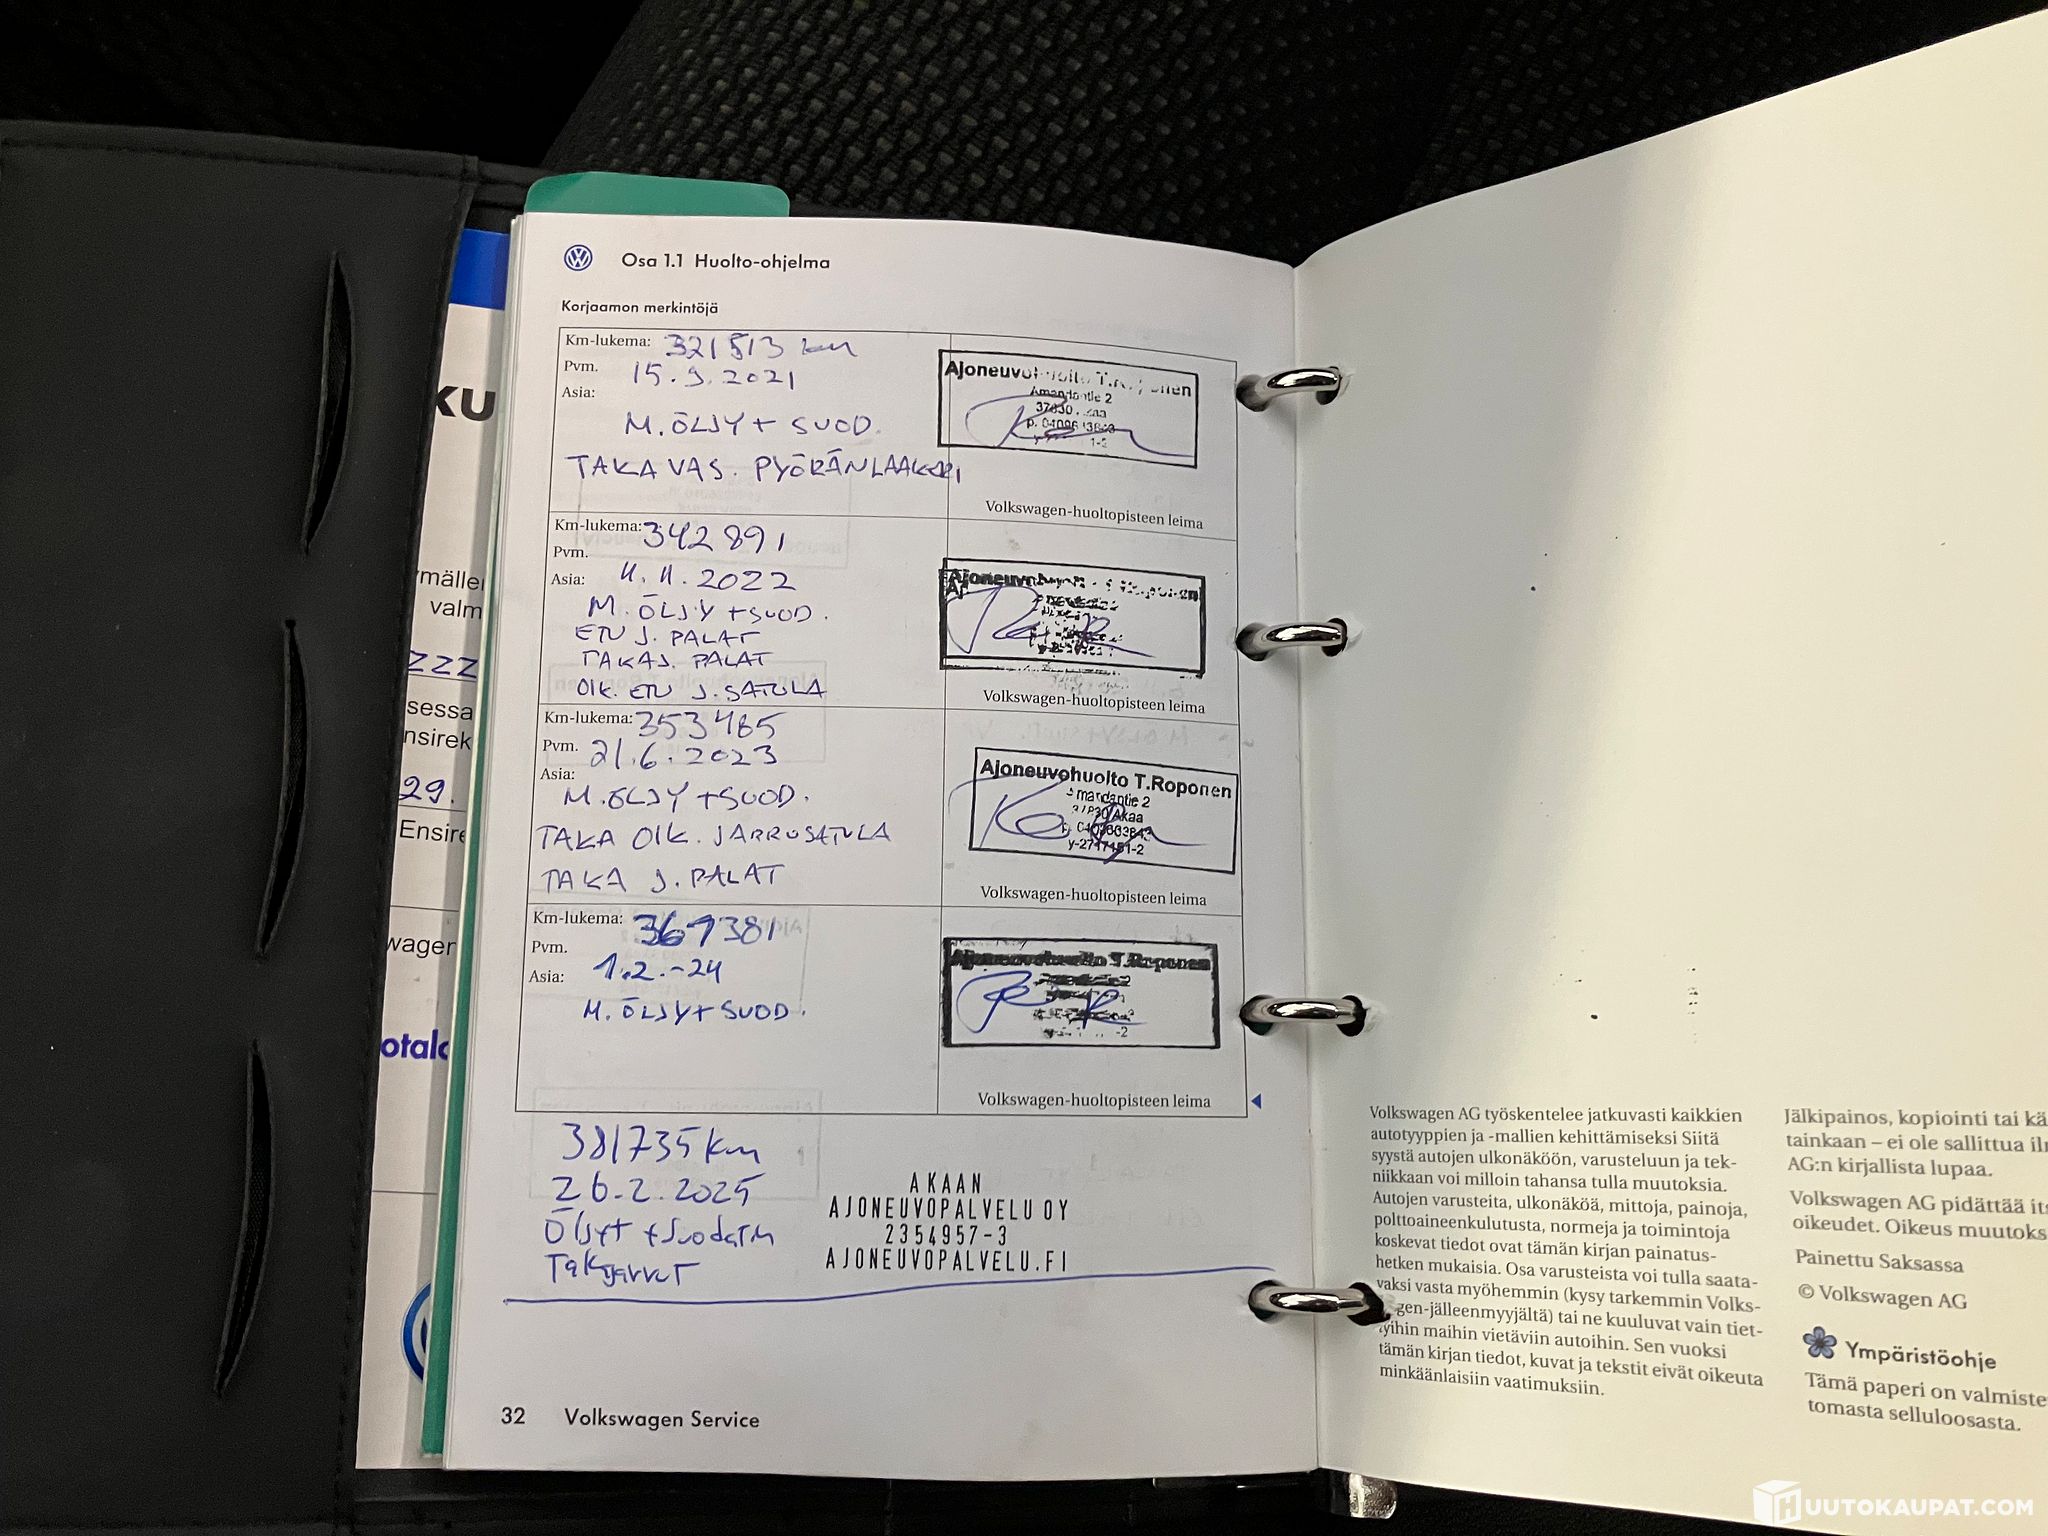 Osa 1.1 Huolto-ohjelma
Korjaamon merkintöjä
Km-lukema: 321513 km
Pvm. 15.9.2021
Asia:
M. ÖLJY + SUOD.
TAKA VAS. PYÖRÄNLAAKERI
Ajoneuvohuolto T.Roponen
Amandantie 2
Volkswagen-huoltopisteen leima
Km-lukema: 342891
Pvm.
Asia: 11.11.2022
M. ÖLJY + SUOD.
ETU J. PALAT
TAKAJ. PALAT
OIK. ETU J. SATULA
Volkswagen-huoltopisteen leima
Km-lukema: 353485
Pvm. 21.6.2023
Asia:
M. ÖLJY + SUOD.
TAKA OIK. JARRUSATULA
TAKA J. PALAT
Ajoneuvohuolto T.Roponen
Amandantie 2
37830 Akaa
y-2717181-2
Volkswagen-huoltopisteen leima
Km-lukema:
Pvm.
Asia: 1.2.-24
M. ÖLJY + SUOD.
Ajoneuvohuolto T.Roponen
Volkswagen-huoltopisteen leima
381735 km
26.2.2025
Öljyt + suodatin
Takajarrut
AKAAN
AJONEUVOPALVELU OY
2354957-3
AJONEUVOPALVELU.FI
32 Volkswagen Service
KU
valm
ZZZ
sessa
nsirek
29.
Ensire
wagen
Volkswagen AG työskentelee jatkuvasti kaikkien
autotyyppien ja -mallien kehittämiseksi Siitä
syystä autojen ulkonäköön, varusteluun ja tek-
niikkaan voi milloin tahansa tulla muutoksia.
Autojen varusteita, ulkonäköä, mittoja, painoja,
polttoaineenkulutusta, normeja ja toimintoja
koskevat tiedot ovat tämän kirjan painatus-
hetken mukaisia. Osa varusteista voi tulla saata-
vaksi vasta myöhemmin (kysy tarkemmin Volks-
gen-jälleenmyyjältä) tai ne kuuluvat vain tiet-
tyihin maihin vietäviin autoihin. Sen vuoksi
tämän kirjan tiedot, kuvat ja tekstit eivät oikeuta
minkäänlaisiin vaatimuksiin.
Jälkipainos, kopiointi tai kä
tainkaan – ei ole sallittua il
AG:n kirjallista lupaa.
Volkswagen AG pidättää it
oikeudet. Oikeus muutoks
Painettu Saksassa
© Volkswagen AG
Ympäristöohje
Tämä paperi on valmiste
tomasta selluloosasta.
HUUTOKAUPAT.COM